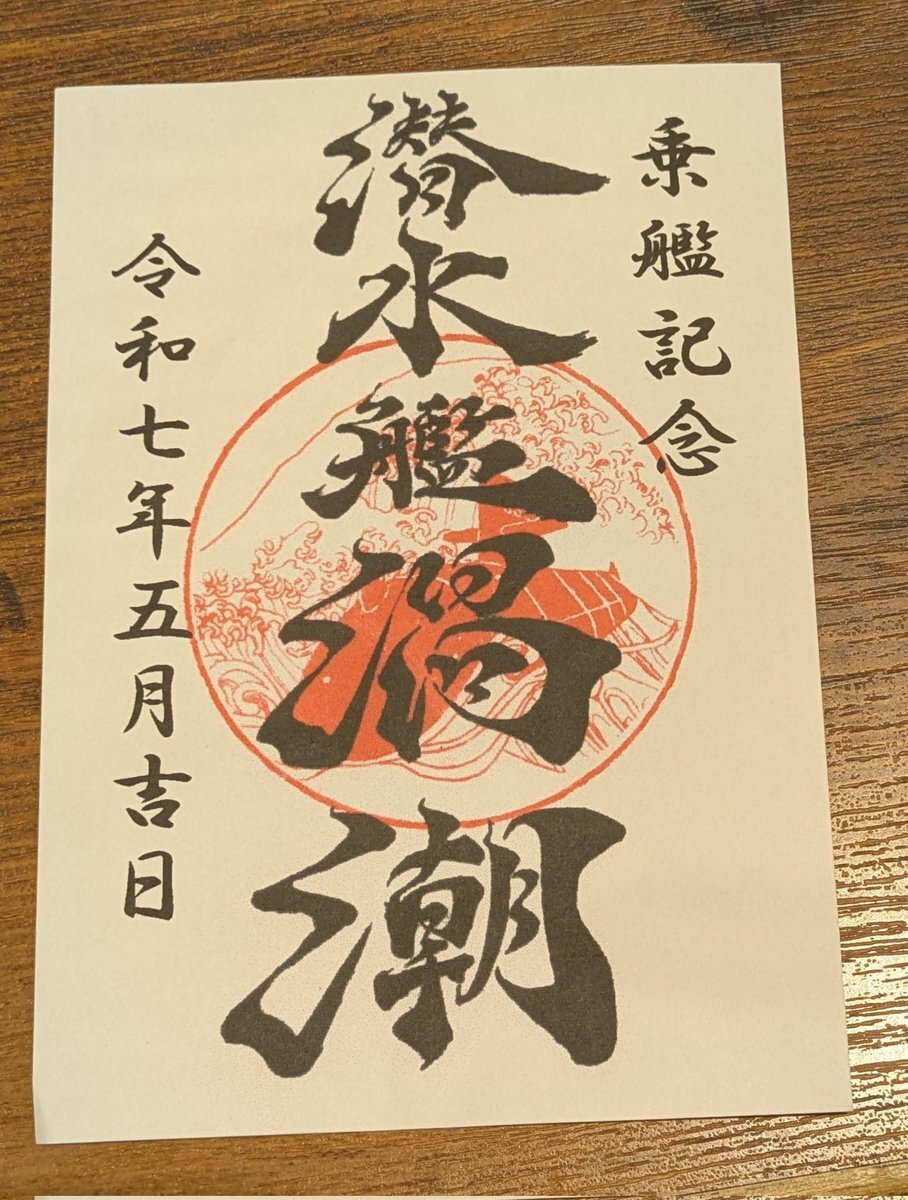 乗艦記念
潜水艦渦潮
令和七年五月吉日